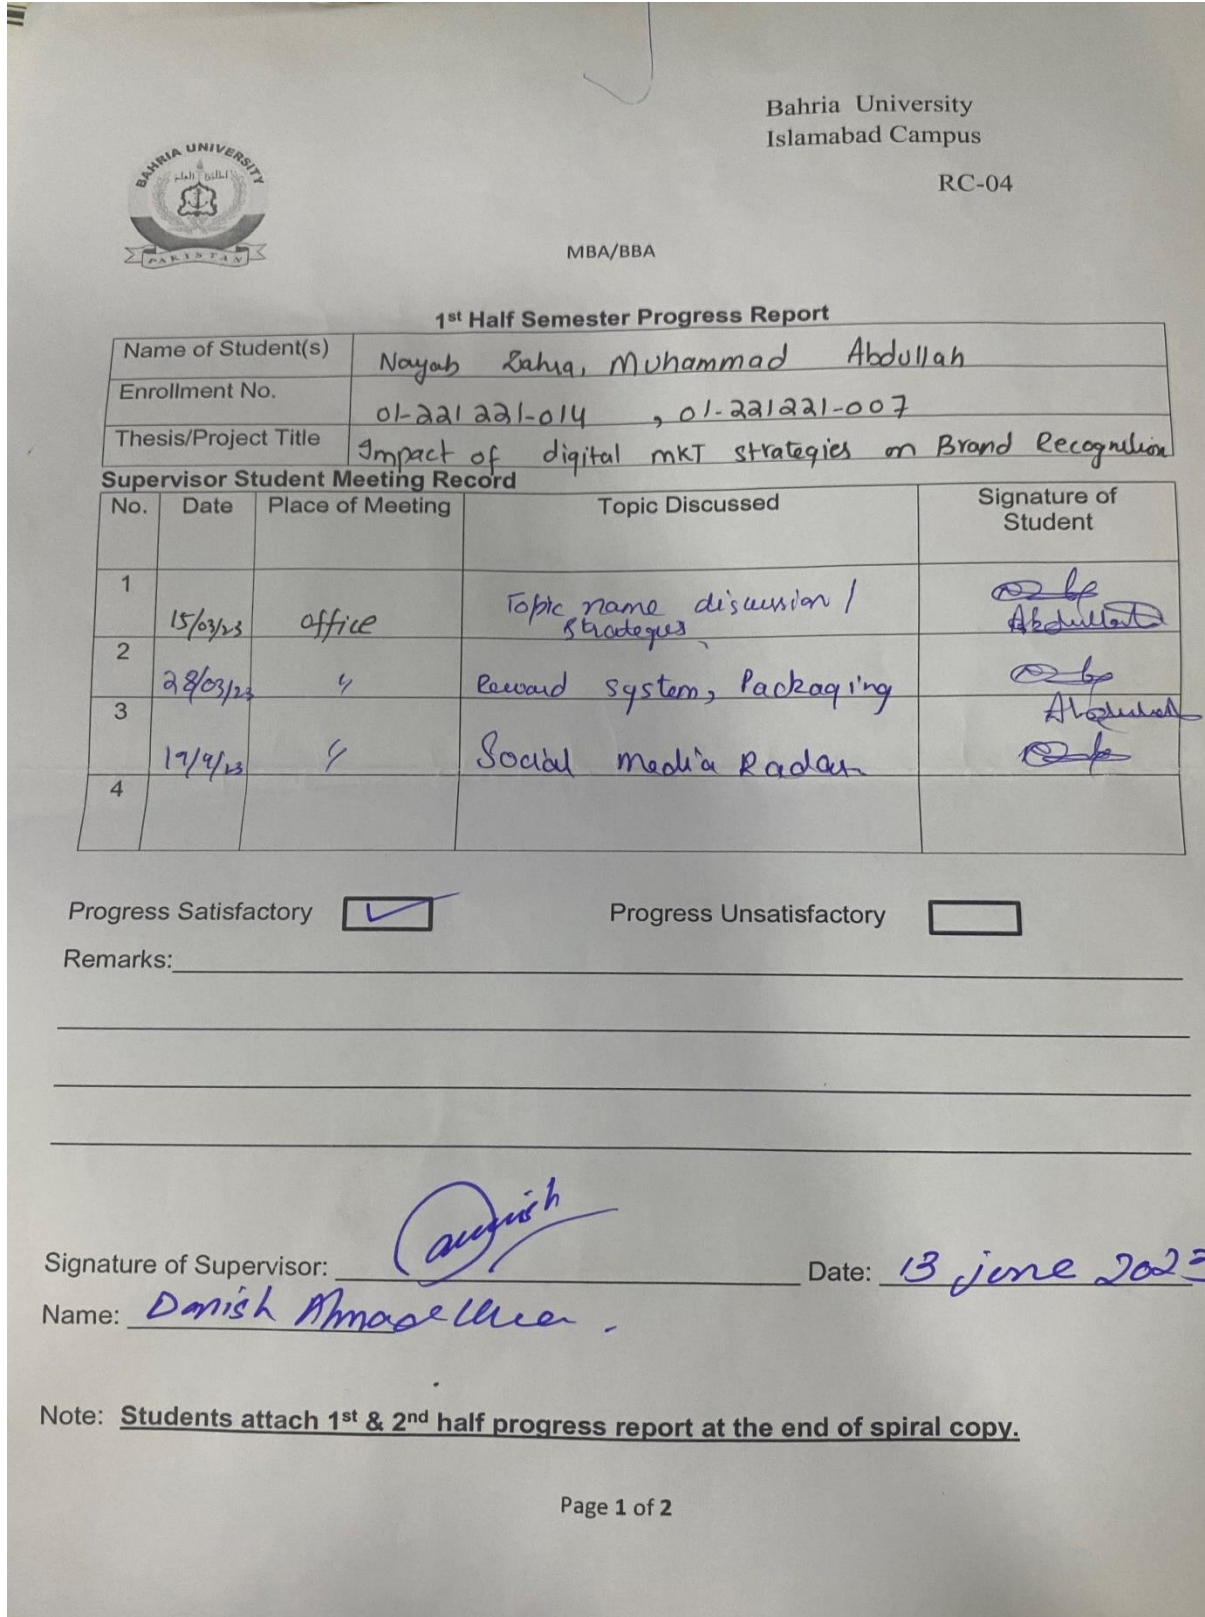 Bahria University
Islamabad Campus
RC-04
BAHRIA UNIVERSITY
PAKISTAN
MBA/BBA
1st Half Semester Progress Report
Name of Student(s) Nayab Zahra, Muhammad Abdullah
Enrollment No. 01-221221-014 , 01-221221-007
Thesis/Project Title Impact of digital MKT strategies on Brand Recognition
Supervisor Student Meeting Record
No. Date Place of Meeting Topic Discussed Signature of Student
1 15/03/23 office Topic name discussion / Strategies Abdullah
2 28/03/23 " Reward system, Packaging
3 " Social media Radar
4
Progress Satisfactory ✓ Progress Unsatisfactory
Remarks:
Signature of Supervisor: Date: 13 june 2023
Name: Danish Ahmad
Note: Students attach 1st & 2nd half progress report at the end of spiral copy.
Page 1 of 2